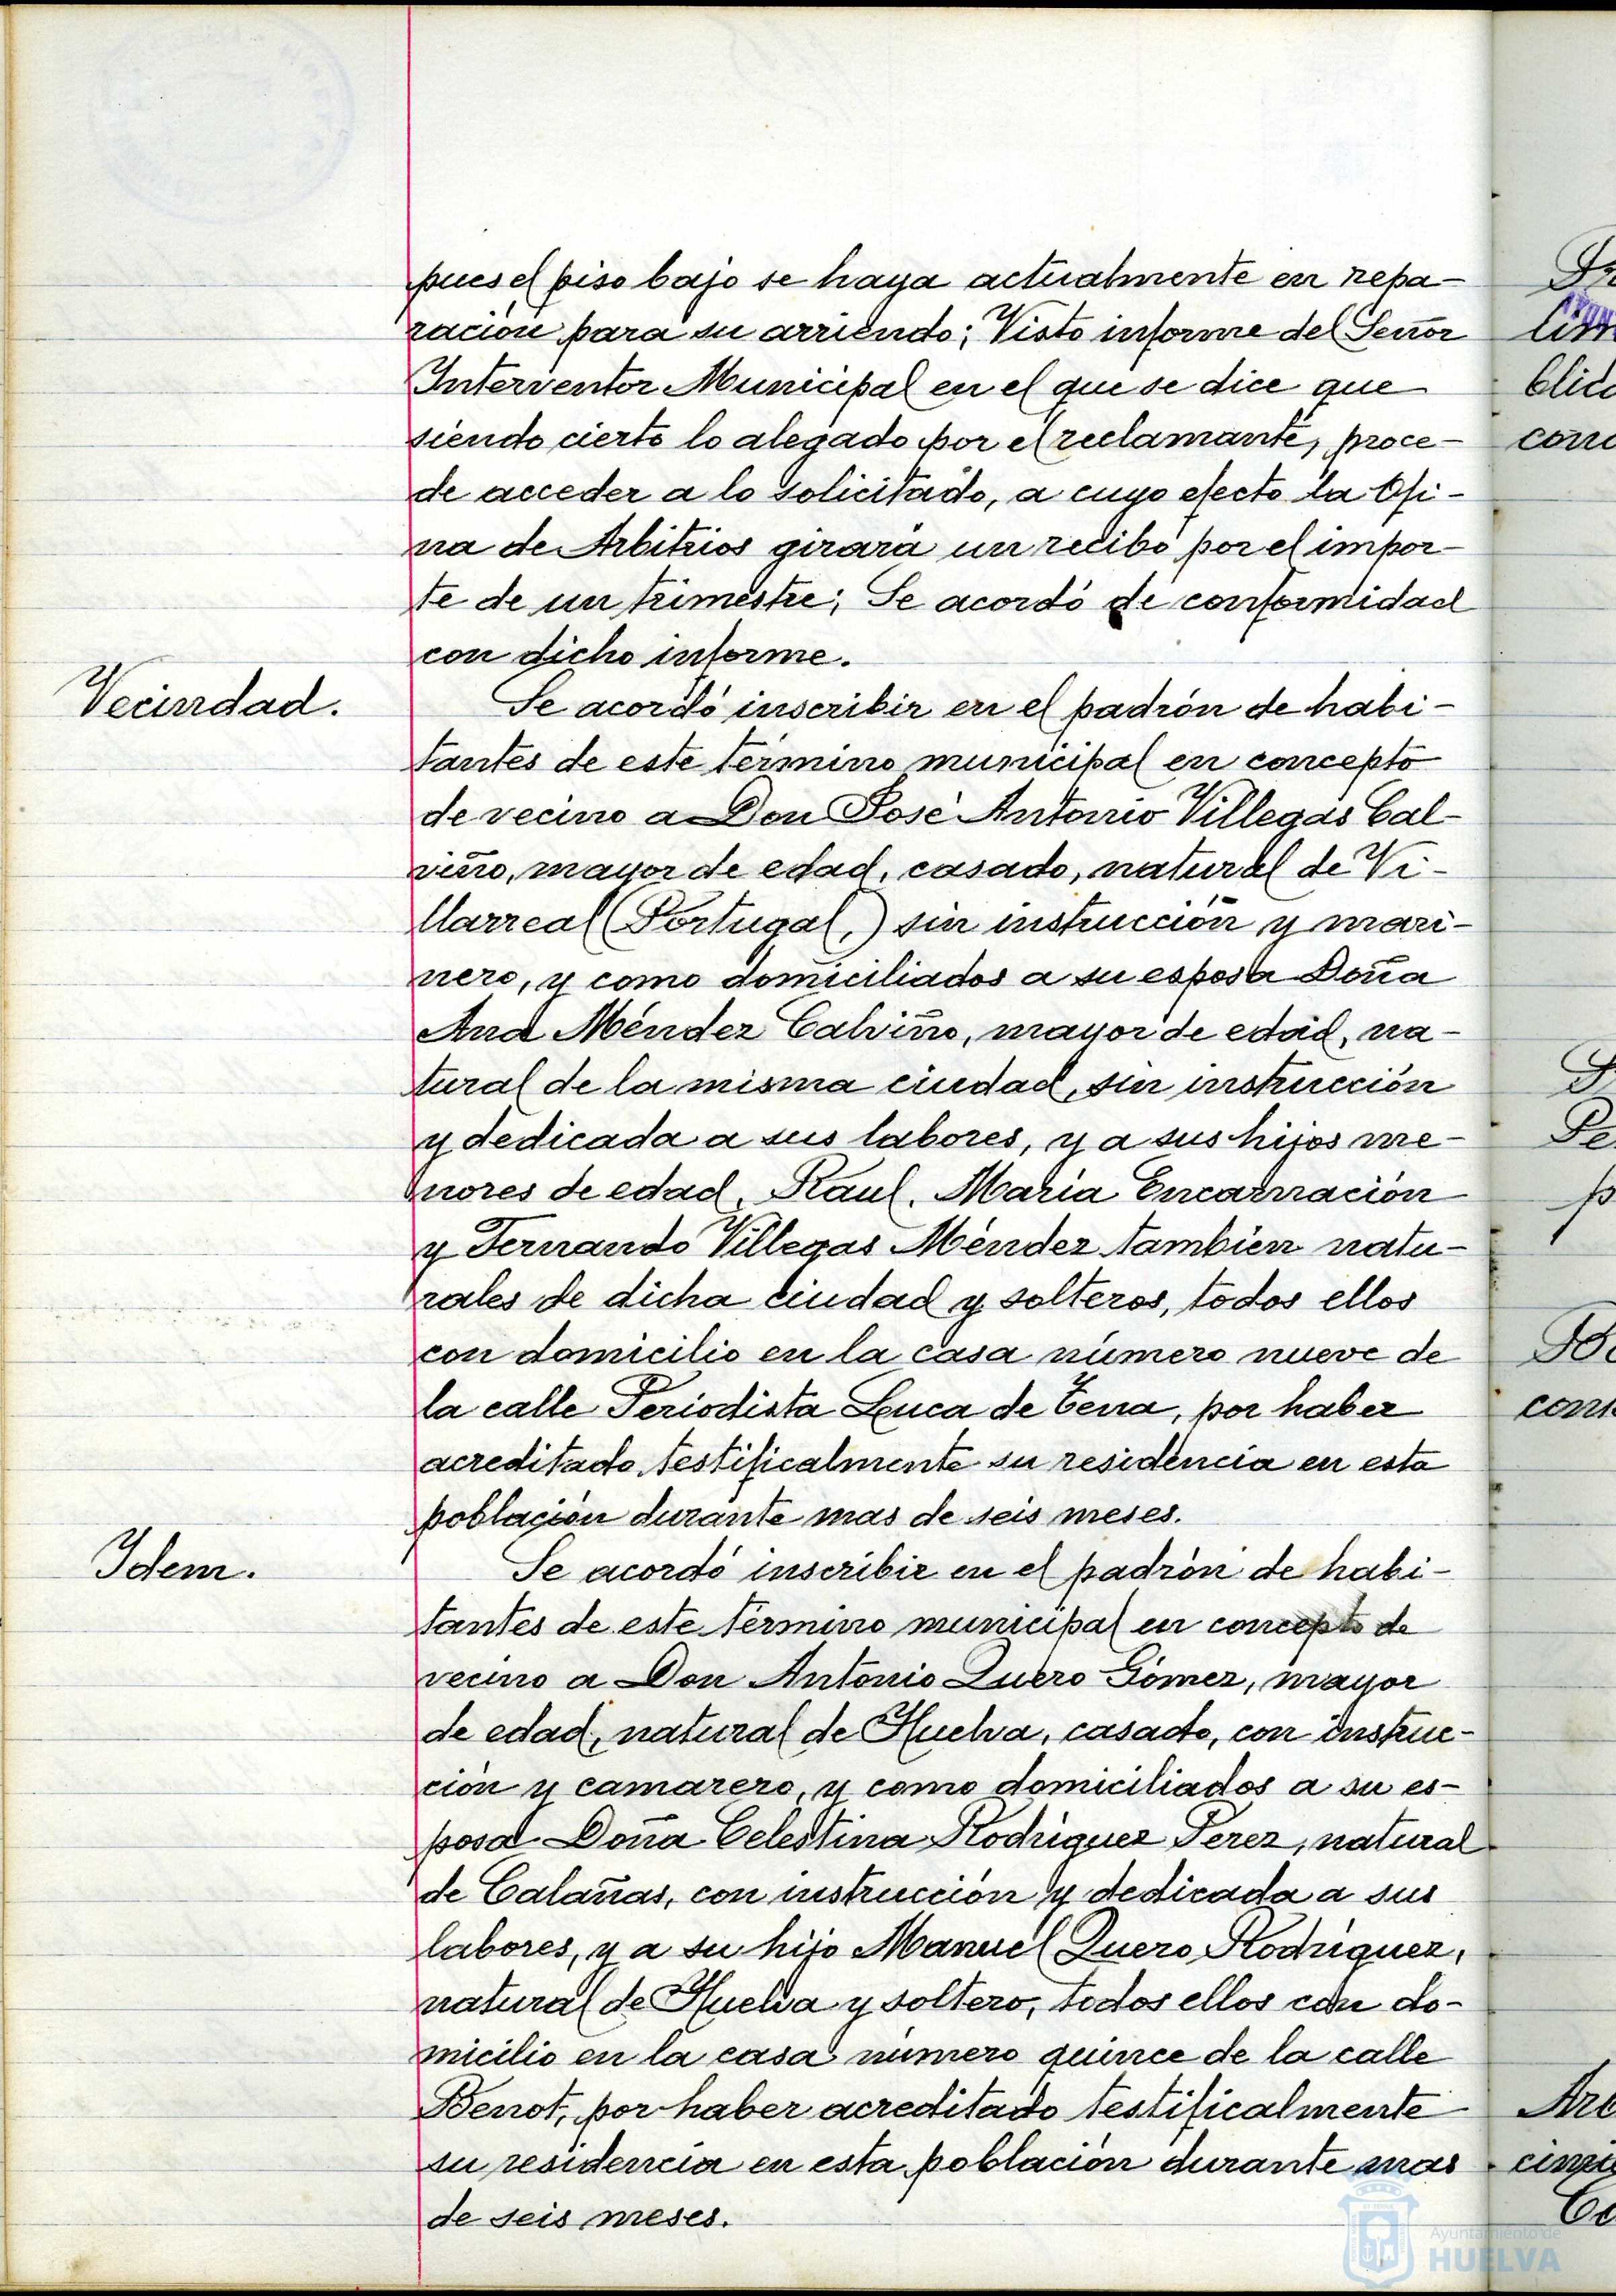 pues el piso bajo se haya actualmente en repa-
ración para su arriendo; Visto informe del Señor
Interventor Municipal en el que se dice que
siendo cierto lo alegado por el reclamante, proce-
de acceder a lo solicitado, a cuyo efecto la Ofi-
na de Arbitrios girará un recibo por el impor-
te de un trimestre; Se acordó de conformidad
con dicho informe.
Vecindad.
Se acordó inscribir en el padrón de habi-
tantes de este término municipal en concepto
de vecino a Don José Antonio Villegas Cal-
viño, mayor de edad, casado, natural de Vi-
llarreal (Portugal,) sin instrucción y mari-
nero, y como domiciliados a su esposa Doña
Ana Méndez Calviño, mayor de edad, na-
tural de la misma ciudad, sin instrucción
y dedicada a sus labores, y a sus hijos me-
nores de edad, Raul, Maria Encarnación
y Fernando Villegas Méndez tambien natu-
rales de dicha ciudad y solteros, todos ellos
con domicilio en la casa número nueve de
la calle Periodista Luca de Tena, por haber
acreditado testificalmente su residencia en esta
población durante mas de seis meses.
Idem.
Se acordó inscribir en el padrón de habi-
tantes de este término municipal en concepto de
vecino a Don Antonio Quero Gómez, mayor
de edad, natural de Huelva, casado, con instruc-
ción y camarero, y como domiciliados a su es-
posa Doña Celestina Rodriguez Perez, natural
de Calañas, con instrucción y dedicada a sus
labores, y a su hijo Manuel Quero Rodriguez,
natural de Huelva y soltero, todos ellos con do-
micilio en la casa número quince de la calle
Benot, por haber acreditado testificalmente
su residencia en esta población durante mas
de seis meses.
Ayuntamiento de
HUELVA